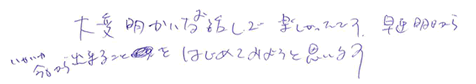 大変明かいなお話しで楽しかったです。早速明日から
今から出来ることをはじめてみようと思います